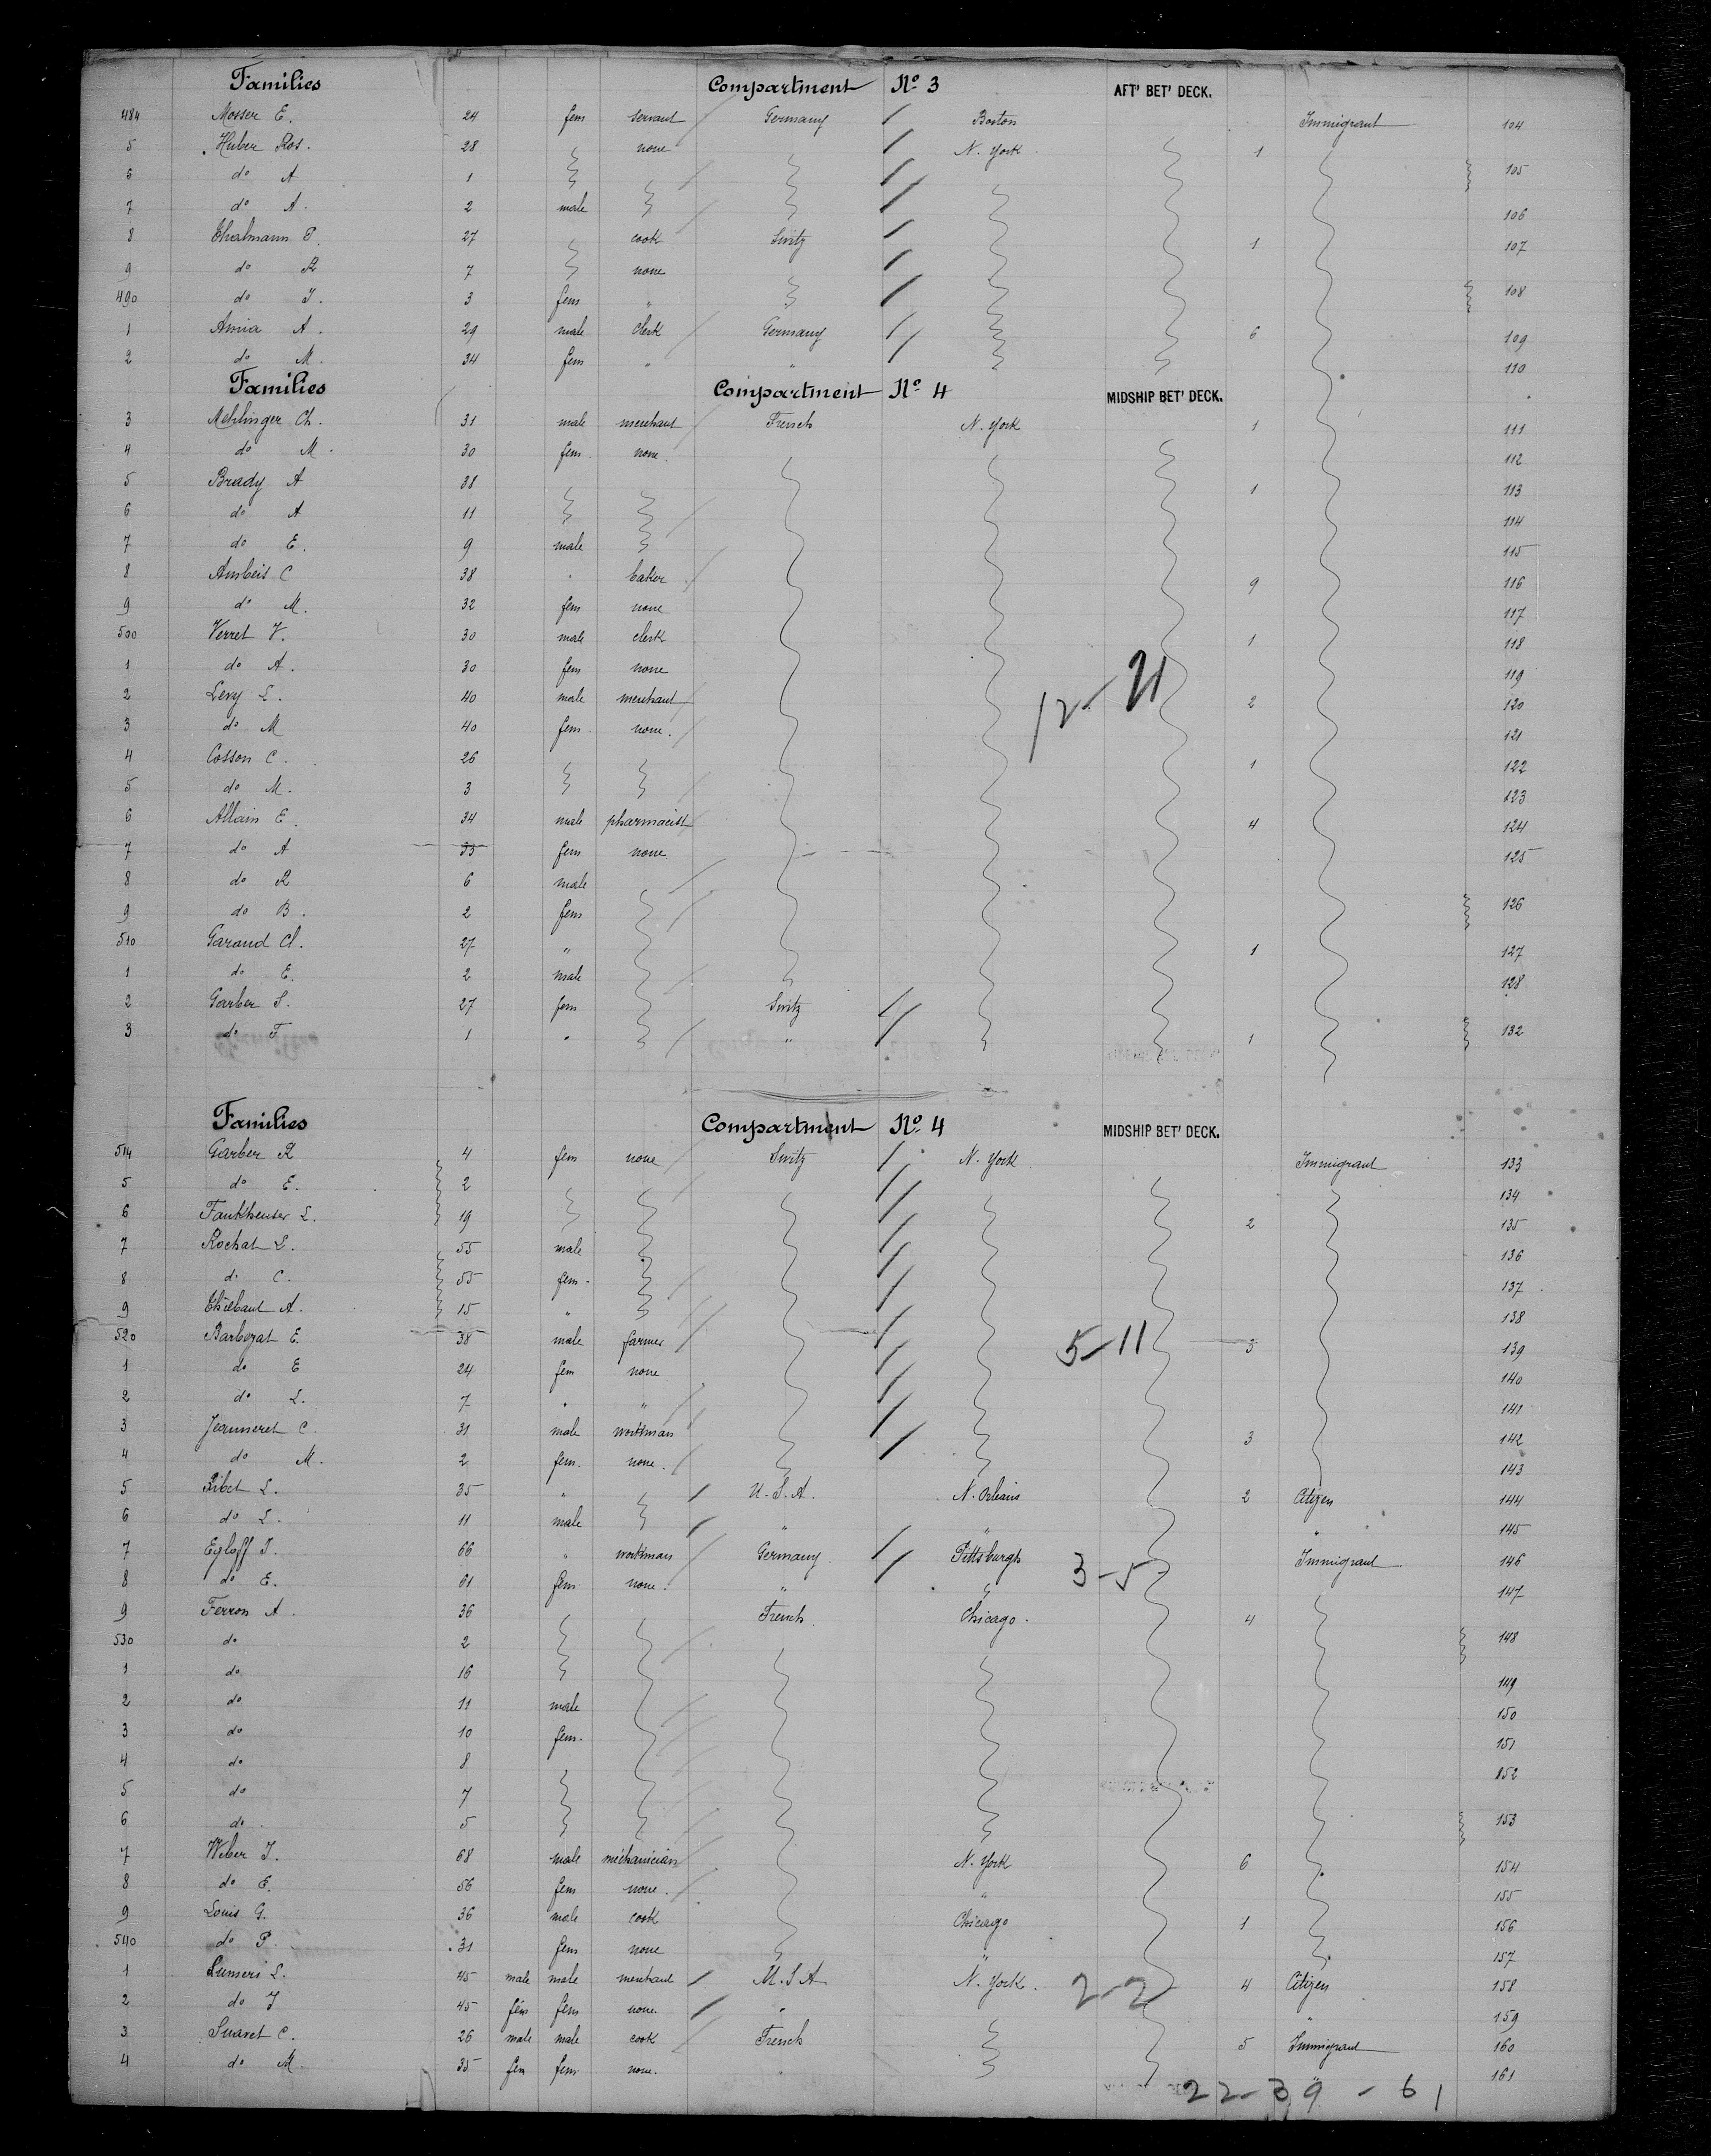 Families Compartment No. 3 AFT' BET' DECK.
484 Mosser E. 24 fem servant Germany Boston Immigrant 104
5 Huber Ros. 28 none N. York 1
6 do A 1 105
7 do A. 2 male 106
8 Thalmann P. 27 cook Switz 1 107
9 do R 7 none
490 do J. 3 fem " 108
1 Amia A. 29 male clerk Germany 6 109
2 do M. 34 fem " " 110
Families Compartment No. 4 MIDSHIP BET' DECK.
3 Mehlinger Ch. 31 male merchant French N. York 1 111
4 do M. 30 fem. none. 112
5 Brady A 38 1 113
6 do A 11 114
7 do E. 9 male 115
8 Ambeis C 38 " baker 9 116
9 do M. 32 fem none 117
500 Verret V. 30 male clerk 1 118
1 do A. 30 fem none 119
2 Levy L. 40 male merchant 2 120
3 do M 40 fem none. 121
4 Cosson C. 26 1 122
5 do M. 3 123
6 Allain E. 34 male pharmacist 4 124
7 do A 33 fem none 125
8 do R 6 male
9 do B. 2 fem 126
510 Garaud Cl. 27 " 1 127
1 do E. 2 male 128
2 Garber S. 27 fem Switz
3 do F 1 " " 1 132
12-21
Families Compartment No. 4 MIDSHIP BET' DECK.
514 Garber R 4 fem none Switz N. York Immigrant 133
5 do E. 2 134
6 Fankheuser L. 19 2 135
7 Rochat L. 55 male 136
8 do C. 55 fem. 137
9 Thiebaut A. 15 " 138
520 Barbezat E. 38 male farmer 5-11 3 139
1 do E 24 fem none 140
2 do L. 7 " " 141
3 Jeanneret C. 31 male workman 3 142
4 do M. 2 fem. none. 143
5 Ribet L. 35 " U.S.A. N. Orleans 2 Citizen 144
6 do L. 11 male " " " 145
7 Egloff J. 66 " workman Germany Pittsburgh Immigrant 146
8 do E. 61 fem none. " " 3-5 147
9 Ferron A. 36 French Chicago. 4
530 do 2 148
1 do 16 149
2 do 11 male 150
3 do 10 fem. 151
4 do 8 152
5 do 7
6 do 5 153
7 Weber J. 68 male mechanician N. York 6 154
8 do E. 56 fem none. " 155
9 Louis G. 36 male cook Chicago 1 156
540 do P. 31 fem none " 157
1 Lumeri L. 45 male male merchant U.S.A N. York. 2-2 4 Citizen 158
2 do J 45 fem fem none. " " 159
3 Suaret C. 26 male male cook French 5 Immigrant 160
4 do M. 35 fem fem none. " 161
22-39-61